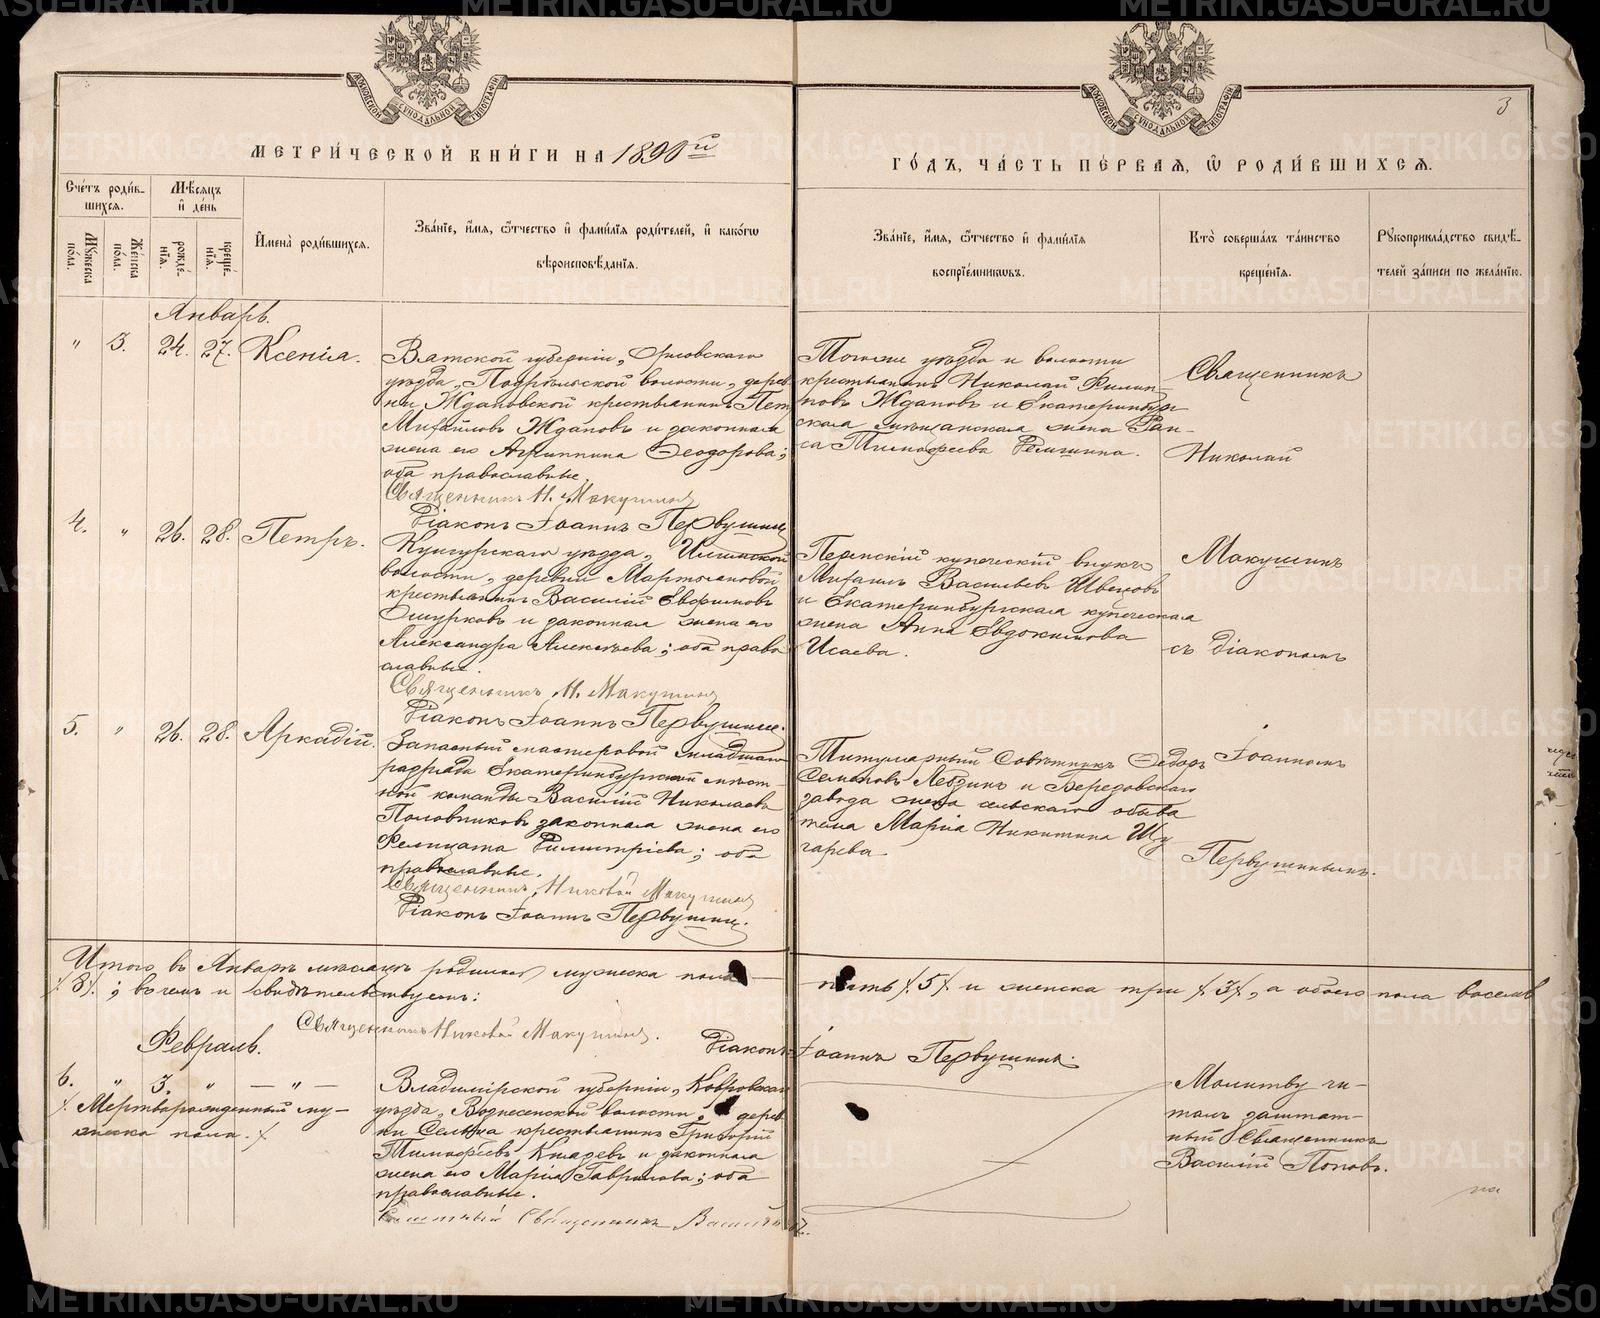 METRIKI.GASO-URAL.RU
МОСКОВСКОЙ СѴНОДАЛЬНОЙ ТИПОГРАФІИ
МОСКОВСКОЙ СѴНОДАЛЬНОЙ ТИПОГРАФІИ
3
МЕТРИ́ЧЕСКОЙ КНИ́ГИ НА 1890й
ГО́ДЪ, ЧА́СТЬ ПЕ́РВАЯ, Ѡ РОДИ́ВШИХСЯ.
Сче́тъ роди́в-
шихся.
Мѣ́сяцъ
и҆ де́нь
Мꙋжеска по́ла.
Же́нска по́ла.
рожде́-
нїя.
креще́-
нїя.
И҆мена̀ роди́вшихся.
Зва́нїе, и҆́мя, ѻ҆́тчество и҆ фами́лїя роди́телей, и҆ како́гѡ
вѣроисповѣ́данїя.
Зва́нїе, и҆́мя, ѻ҆́тчество и҆ фами́лїя
воспрїе́мникѡвъ.
Кто̀ соверша́лъ та́инство
креще́нїя.
Рꙋкоприкла́дство свидѣ́-
телей за́писи по жела́нїю.
Январь.
" 3. 24. 27. Ксенія.
Вятской губерніи, Орловскаго
уѣзда, Подрѣльской волости, дерев
ни Ждановской крестьянинъ Петръ
Михайловъ Ждановъ и законная
жена его Агриппина Ѳеодорова;
оба православные.
Священникъ Н. Макушинъ
Діаконъ Іоаннъ Первушинъ
Тогоже уѣзда и волости
крестьянинъ Николай Филип-
повъ Ждановъ и Екатеринбург
ская мѣщанская жена Раи-
са Тимофеева
Священникъ
Николай
4. " 26. 28. Петръ.
Кунгурскаго уѣзда,
волости, деревни Мартьяновой
крестьянинъ Василій Евфимовъ
и законная жена его
Александра Алексѣева; оба право
славные.
Священникъ Н. Макушинъ
Діаконъ Іоаннъ Первушинъ.
Пермскій купеческій внукъ
Михаилъ Васильевъ Швецовъ
и Екатеринбургская купеческая
жена Анна Евдокимова
Исаева.
Макушинъ
съ Діакономъ
5. " 26. 28. Аркадій.
Запасный мастеровой младшаго
разряда Екатеринбургской мѣст-
ной команды Василій Николаевъ
Половниковъ законная жена его
Фелицата Димитріева; оба
православные.
Священникъ Николай Макушинъ
Діаконъ Іоаннъ Первушинъ.
Титулярный Совѣтникъ Ѳедоръ
Семеновъ и Березовскаго
завода жена сельскаго обыва
теля Марія Никитина
гарева
Іоанномъ
Первушинымъ.
Итого въ Январѣ мѣсяцѣ родилось мужеска пола
пять /5/ и женска три /3/, а обоего пола восемь
/8/; въ чемъ и свидѣтельствуемъ:
Священникъ Николай Макушинъ. Діаконъ Іоаннъ Первушинъ.
Февраль.
6. " 3. " — " —
/Мертворожденный му-
жеска пола./
Владимірской губерніи, Ковровскаго
уѣзда, Вознесенской волости, дерев
ни крестьянинъ Григорій
Тимофѣевъ и законная
жена его Марія Гаврилова; оба
православные.
Заштатный Священникъ Василій
Молитву чи-
талъ заштат-
ный Священникъ
Василій Поповъ.